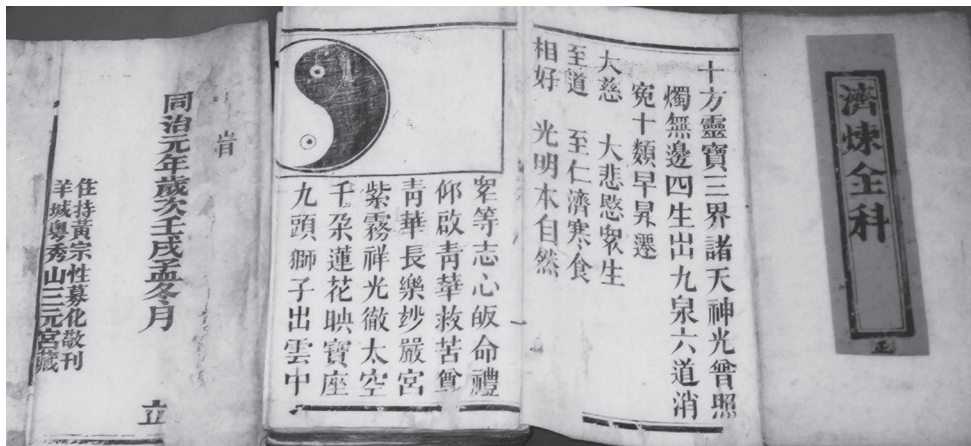 濟煉全科
正
十方靈寶三界諸天神光曾照
燭無邊四生出九泉六道消
寃十類早昇遷
大慈 大悲愍眾生
至道 至仁濟寒食
相好 光明本自然
眾等志心皈命禮
仰啟青華救苦尊
青華長樂玅嚴宮
紫霧祥光徹太空
千朶蓮花映寶座
九頭獅子出雲中
旹
同治元年歲次壬戌孟冬月 立
住持黃宗性募化敬刊
羊城粵秀山三元宮藏